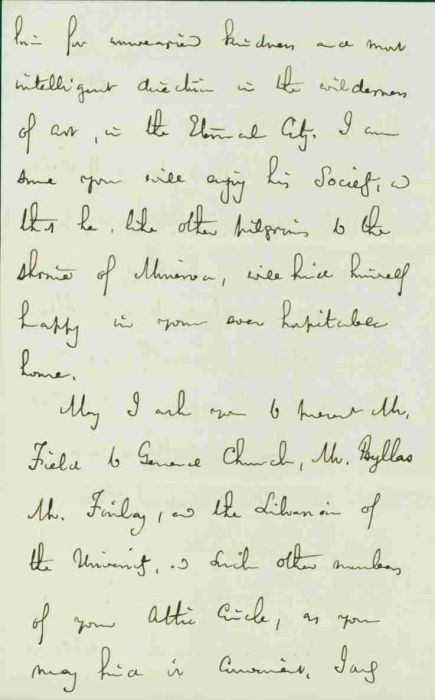 him for unwearied kindness and most
intelligent direction in the wilderness
of art, in the Eternal City. I am
sure you will enjoy his Society, &
that he, like other pilgrims to the
shrine of Minerva, will find himself
happy in your ever hospitable
home.
May I ask you to present Mr.
Field to General Church, Mr. Psyllas
Mr. Finlay, & the Librarian of
the University, & such other members
of your Attic Circle, as you
may find it convenient. I any